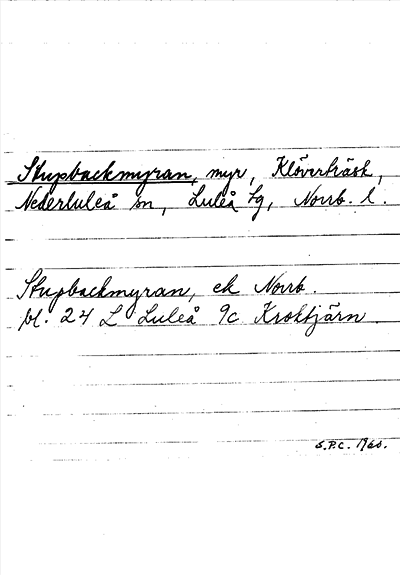 Stupbackmyran, myr, Klöverträsk,
Nederluleå sn, Luleå tg, Norrb. l.
Stupbackmyran, ek Norrb.
bl. 24 L Luleå 9c Kroktjärn.
S.P.C. 1960.